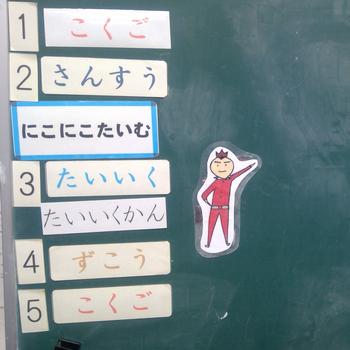 1 こくご
2 さんすう
にこにこたいむ
3 たいいく
たいいくかん
4 ずこう
5 こくご